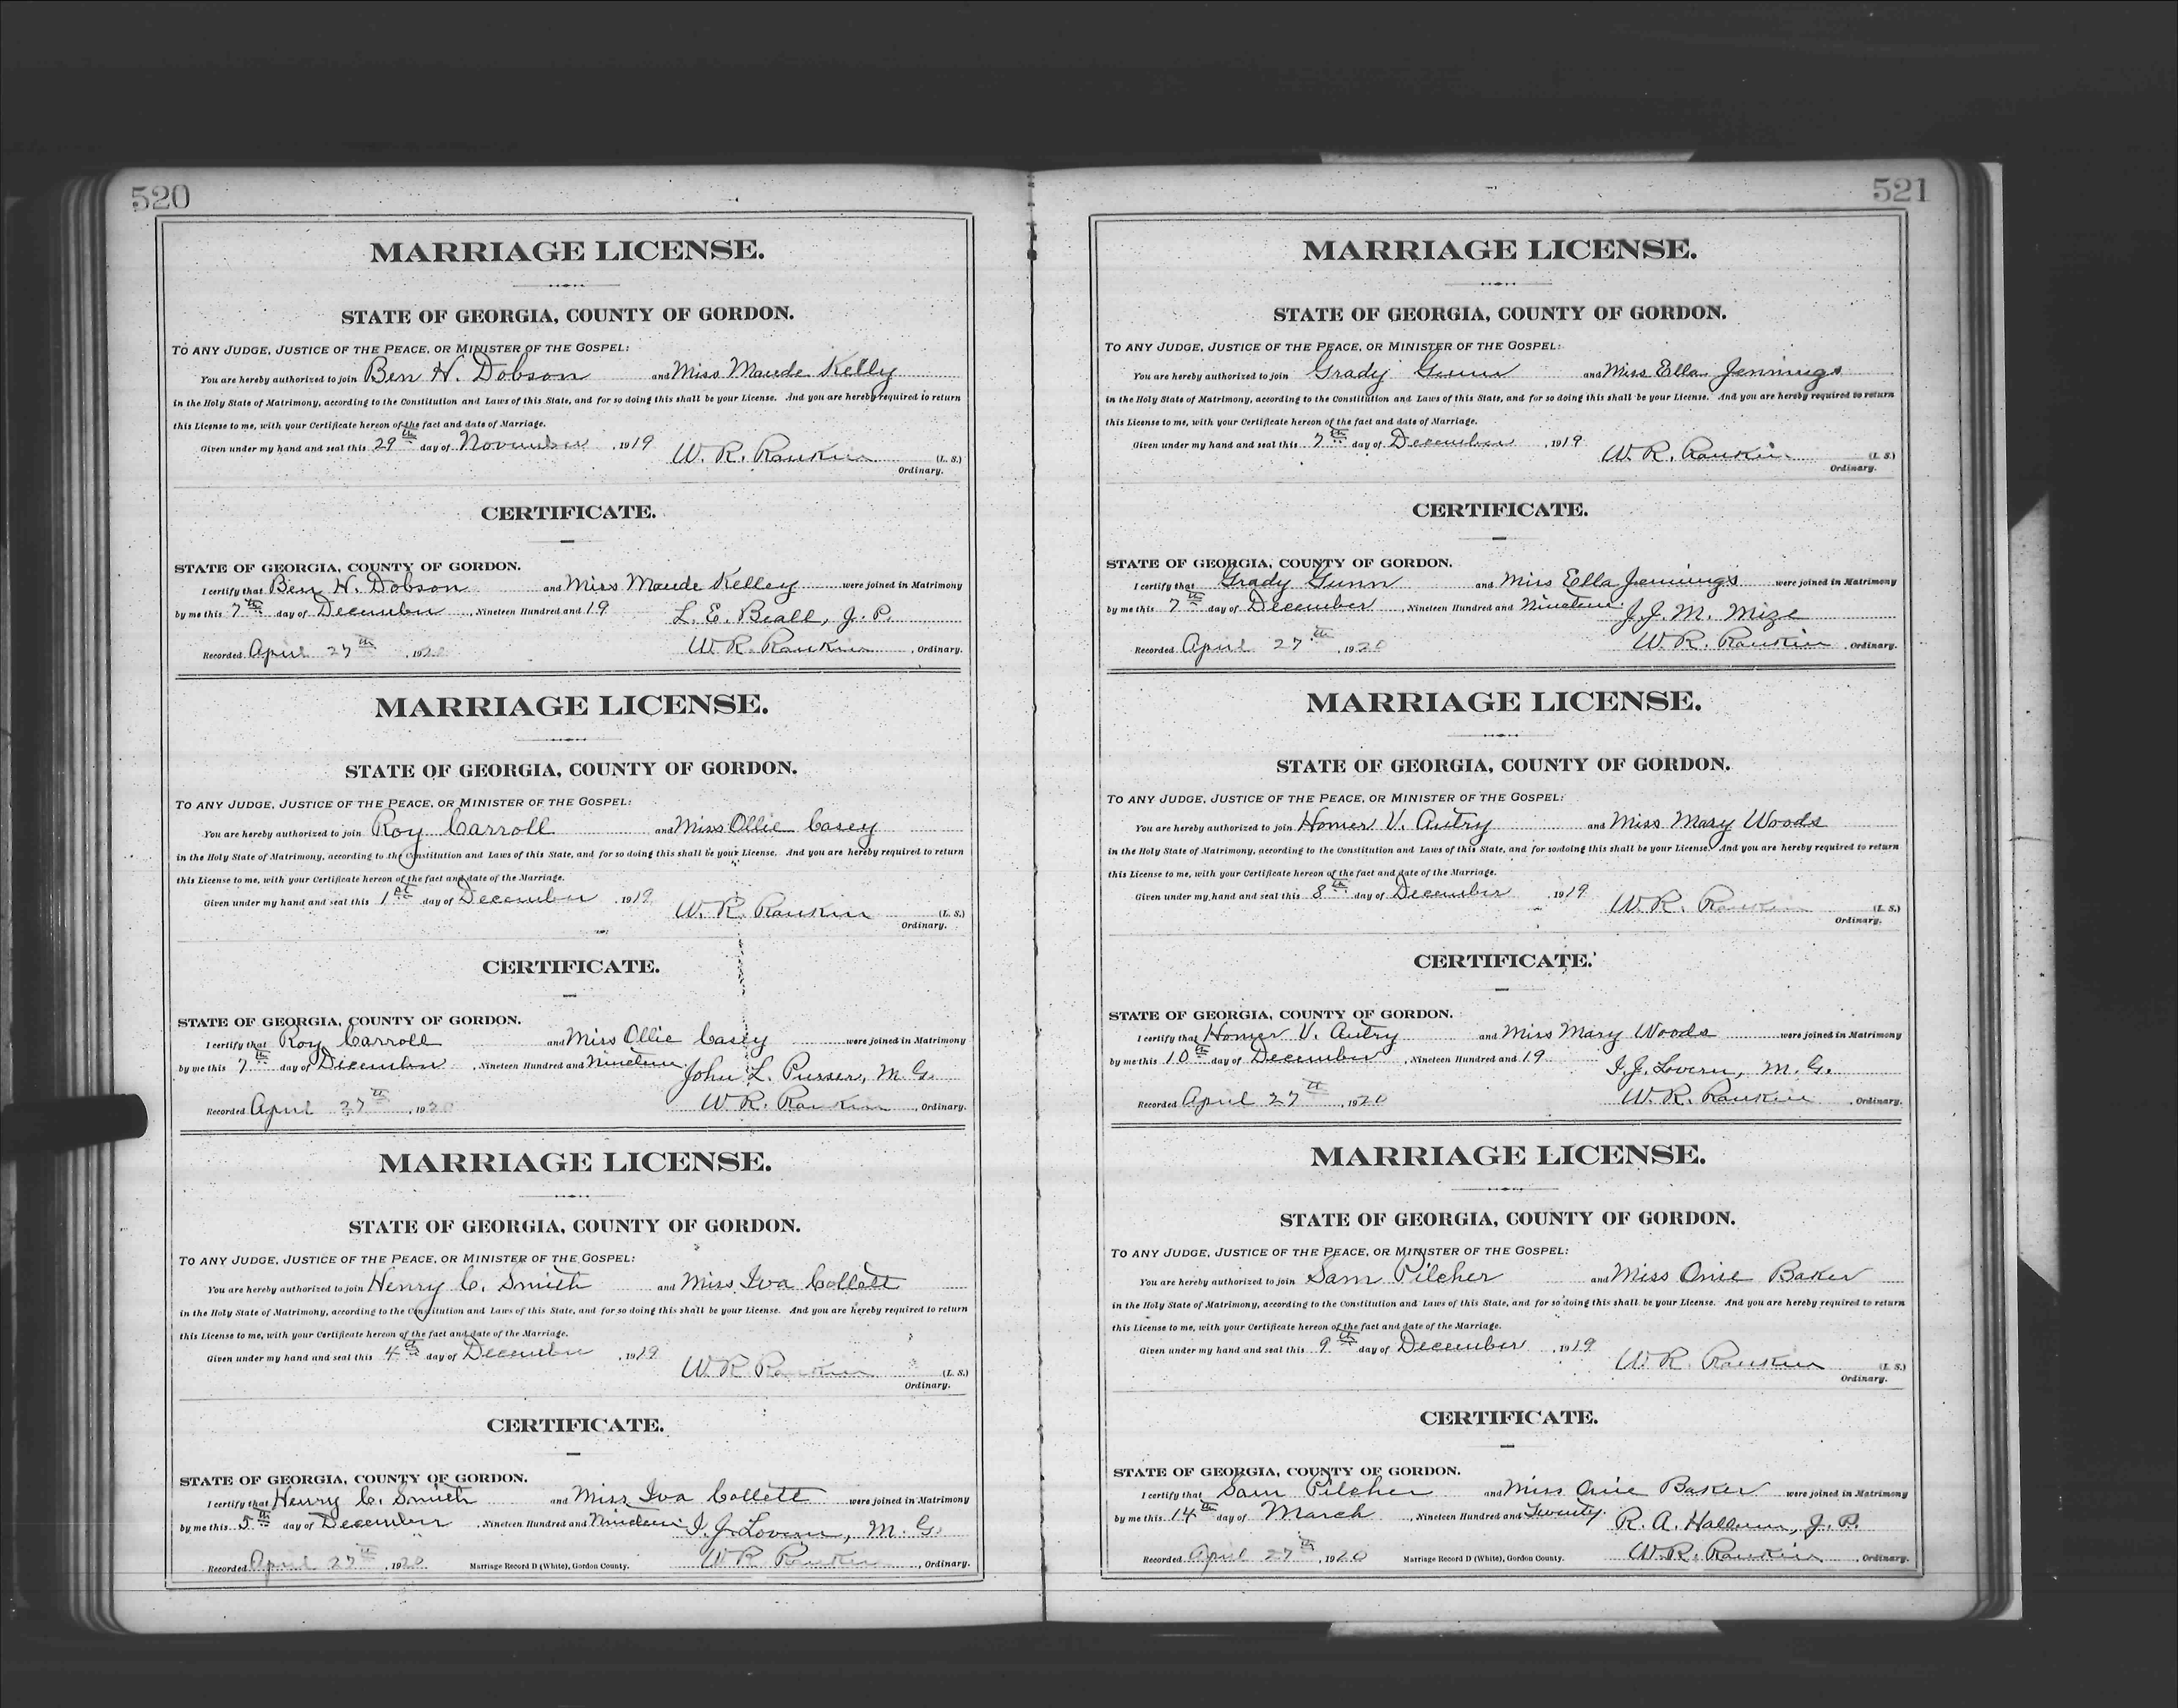 520
MARRIAGE LICENSE.
STATE OF GEORGIA, COUNTY OF GORDON.
TO ANY JUDGE, JUSTICE OF THE PEACE, OR MINISTER OF THE GOSPEL:
You are hereby authorized to join Ben H. Dobson and Miss Maude Kelly
in the Holy State of Matrimony, according to the Constitution and Laws of this State, and for so doing this shall be your License. And you are hereby required to return
this License to me, with your Certificate hereon of the fact and date of Marriage.
Given under my hand and seal this 29th day of November, 1919 W. R. Rankin (L. S.)
Ordinary.
CERTIFICATE.
STATE OF GEORGIA, COUNTY OF GORDON.
I certify that Ben H. Dobson and Miss Maude Kelley were joined in Matrimony
by me this 7th day of December, Nineteen Hundred and 19 L. E. Beall, J. P.
Recorded April 27th, 1920 W. R. Rankin, Ordinary.
MARRIAGE LICENSE.
STATE OF GEORGIA, COUNTY OF GORDON.
TO ANY JUDGE, JUSTICE OF THE PEACE, OR MINISTER OF THE GOSPEL:
You are hereby authorized to join Roy Carroll and Miss Ollie Casey
in the Holy State of Matrimony, according to the Constitution and Laws of this State, and for so doing this shall be your License. And you are hereby required to return
this License to me, with your Certificate hereon of the fact and date of the Marriage.
Given under my hand and seal this 1st day of December, 1919 W. R. Rankin (L. S.)
Ordinary.
CERTIFICATE.
STATE OF GEORGIA, COUNTY OF GORDON.
I certify that Roy Carroll and Miss Ollie Casey were joined in Matrimony
by me this 7th day of December, Nineteen Hundred and Nineteen John L. Purser, M. G.
Recorded April 27th, 1920 W. R. Rankin, Ordinary.
MARRIAGE LICENSE.
STATE OF GEORGIA, COUNTY OF GORDON.
TO ANY JUDGE, JUSTICE OF THE PEACE, OR MINISTER OF THE GOSPEL:
You are hereby authorized to join Henry C. Smith and Miss Iva Collett
in the Holy State of Matrimony, according to the Constitution and Laws of this State, and for so doing this shall be your License. And you are hereby required to return
this License to me, with your Certificate hereon of the fact and date of the Marriage.
Given under my hand and seal this 4th day of December, 1919 W. R. Rankin (L. S.)
Ordinary.
CERTIFICATE.
STATE OF GEORGIA, COUNTY OF GORDON.
I certify that Henry C. Smith and Miss Iva Collett were joined in Matrimony
by me this 5th day of December, Nineteen Hundred and Nineteen I. J. Lovern, M. G.
Recorded April 27th, 1920 Marriage Record D (White), Gordon County. W. R. Rankin, Ordinary.
521
MARRIAGE LICENSE.
STATE OF GEORGIA, COUNTY OF GORDON.
TO ANY JUDGE, JUSTICE OF THE PEACE, OR MINISTER OF THE GOSPEL:
You are hereby authorized to join Grady Gunn and Miss Ella Jennings
in the Holy State of Matrimony, according to the Constitution and Laws of this State, and for so doing this shall be your License. And you are hereby required to return
this License to me, with your Certificate hereon of the fact and date of Marriage.
Given under my hand and seal this 7th day of December, 1919 W. R. Rankin (L. S.)
Ordinary.
CERTIFICATE.
STATE OF GEORGIA, COUNTY OF GORDON.
I certify that Grady Gunn and Miss Ella Jennings were joined in Matrimony
by me this 7th day of December, Nineteen Hundred and Nineteen J. J. M. Mize
Recorded April 27th, 1920 W. R. Rankin, Ordinary.
MARRIAGE LICENSE.
STATE OF GEORGIA, COUNTY OF GORDON.
TO ANY JUDGE, JUSTICE OF THE PEACE, OR MINISTER OF THE GOSPEL:
You are hereby authorized to join Homer V. Autry and Miss Mary Woods
in the Holy State of Matrimony, according to the Constitution and Laws of this State, and for so doing this shall be your License. And you are hereby required to return
this License to me, with your Certificate hereon of the fact and date of the Marriage.
Given under my hand and seal this 8th day of December, 1919 W. R. Rankin (L. S.)
Ordinary.
CERTIFICATE.
STATE OF GEORGIA, COUNTY OF GORDON.
I certify that Homer V. Autry and Miss Mary Woods were joined in Matrimony
by me this 10th day of December, Nineteen Hundred and 19 I. J. Lovern, M. G.
Recorded April 27th, 1920 W. R. Rankin, Ordinary.
MARRIAGE LICENSE.
STATE OF GEORGIA, COUNTY OF GORDON.
TO ANY JUDGE, JUSTICE OF THE PEACE, OR MINISTER OF THE GOSPEL:
You are hereby authorized to join Sam Pilcher and Miss Onie Baker
in the Holy State of Matrimony, according to the Constitution and Laws of this State, and for so doing this shall be your License. And you are hereby required to return
this License to me, with your Certificate hereon of the fact and date of the Marriage.
Given under my hand and seal this 9th day of December, 1919 W. R. Rankin (L. S.)
Ordinary.
CERTIFICATE.
STATE OF GEORGIA, COUNTY OF GORDON.
I certify that Sam Pilcher and Miss Onie Baker were joined in Matrimony
by me this 14th day of March, Nineteen Hundred and Twenty. R. A. Hallum, J. P.
Recorded April 27th, 1920 Marriage Record D (White), Gordon County. W. R. Rankin, Ordinary.